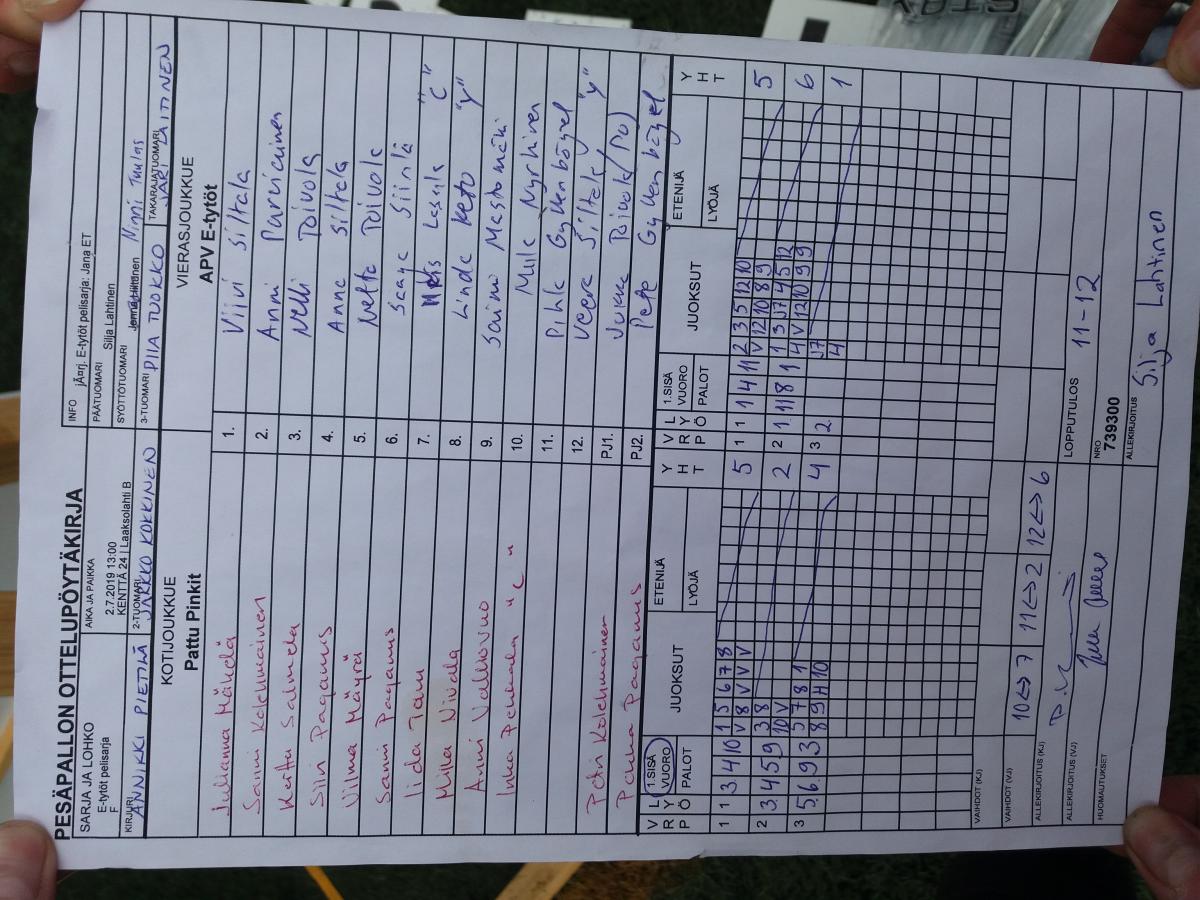 PESÄPALLON OTTELUPÖYTÄKIRJA
SARJA JA LOHKO
E-tytöt pelisarja
F
AIKA JA PAIKKA
2.7.2019 13:00
KENTTÄ 24 | Laaksolahti B
INFO jÄ¤rj. E-tytöt pelisarja: Jana ET
PÄÄTUOMARI Silja Lahtinen
SYÖTTÖTUOMARI Ninni Tuulas
KIRJURI ANNIKKI PIETILÄ
2-TUOMARI JARKKO KOKKINEN
3-TUOMARI PIIA TUOKKO
TAKARAJATUOMARI JARI LAITINEN
KOTIJOUKKUE
Pattu Pinkit
VIERASJOUKKUE
APV E-tytöt
Julianna Mäkelä 1. Viivi Siltala
Sanni Kolehmainen 2. Anni Parviainen
Kerttu Salmela 3. Nelli Poivola
Siiri Paganus 4. Anna Siltala
Vilma Mäyrä 5. Netta Poivola
Sanni Paganus 6. Saaga Siirilä
Iida Tami 7. Lassila "C"
Milla Nivala 8. Linda Keto "y"
Anni Valkovuo 9. Saimi Mastomäki
Inka Penkkala "C" 10. Milla Myrhinen
11. Pihla Gyllenbögel
12. Veera Siltala "y"
Petri Kolehmainen PJ1. Jukka Poivola (PJ)
Pekka Paganus PJ2. Pete Gyllenbögel
V R P L Y Ö 1.SISÄ VUORO PALOT JUOKSUT ETENIJÄ LYÖJÄ Y H T V R P L Y Ö 1.SISÄ VUORO PALOT JUOKSUT ETENIJÄ LYÖJÄ Y H T
1 1 3 4 10 1 5 6 7 8 5 1 1 1 4 11 2 3 5 12 10 5
V 8 V V V V 12 10 8 9
2 3. 4 5 9 3 8 2 2 1 11 8 1 1 3 J7 4 5 12 6
10 V 4 V 12 10 9 9
3 5. 6. 9 3 5 7 8 1 4 3 2 J7 1
8 9 H 10 4
VAIHDOT (KJ)
VAIHDOT (VJ) 10<->7 11<->2 12<->6
ALLEKIRJOITUS (KJ)
ALLEKIRJOITUS (VJ)
HUOMAUTUKSET
LOPPUTULOS 11-12
NRO
739300
ALLEKIRJOITUS Silja Lahtinen